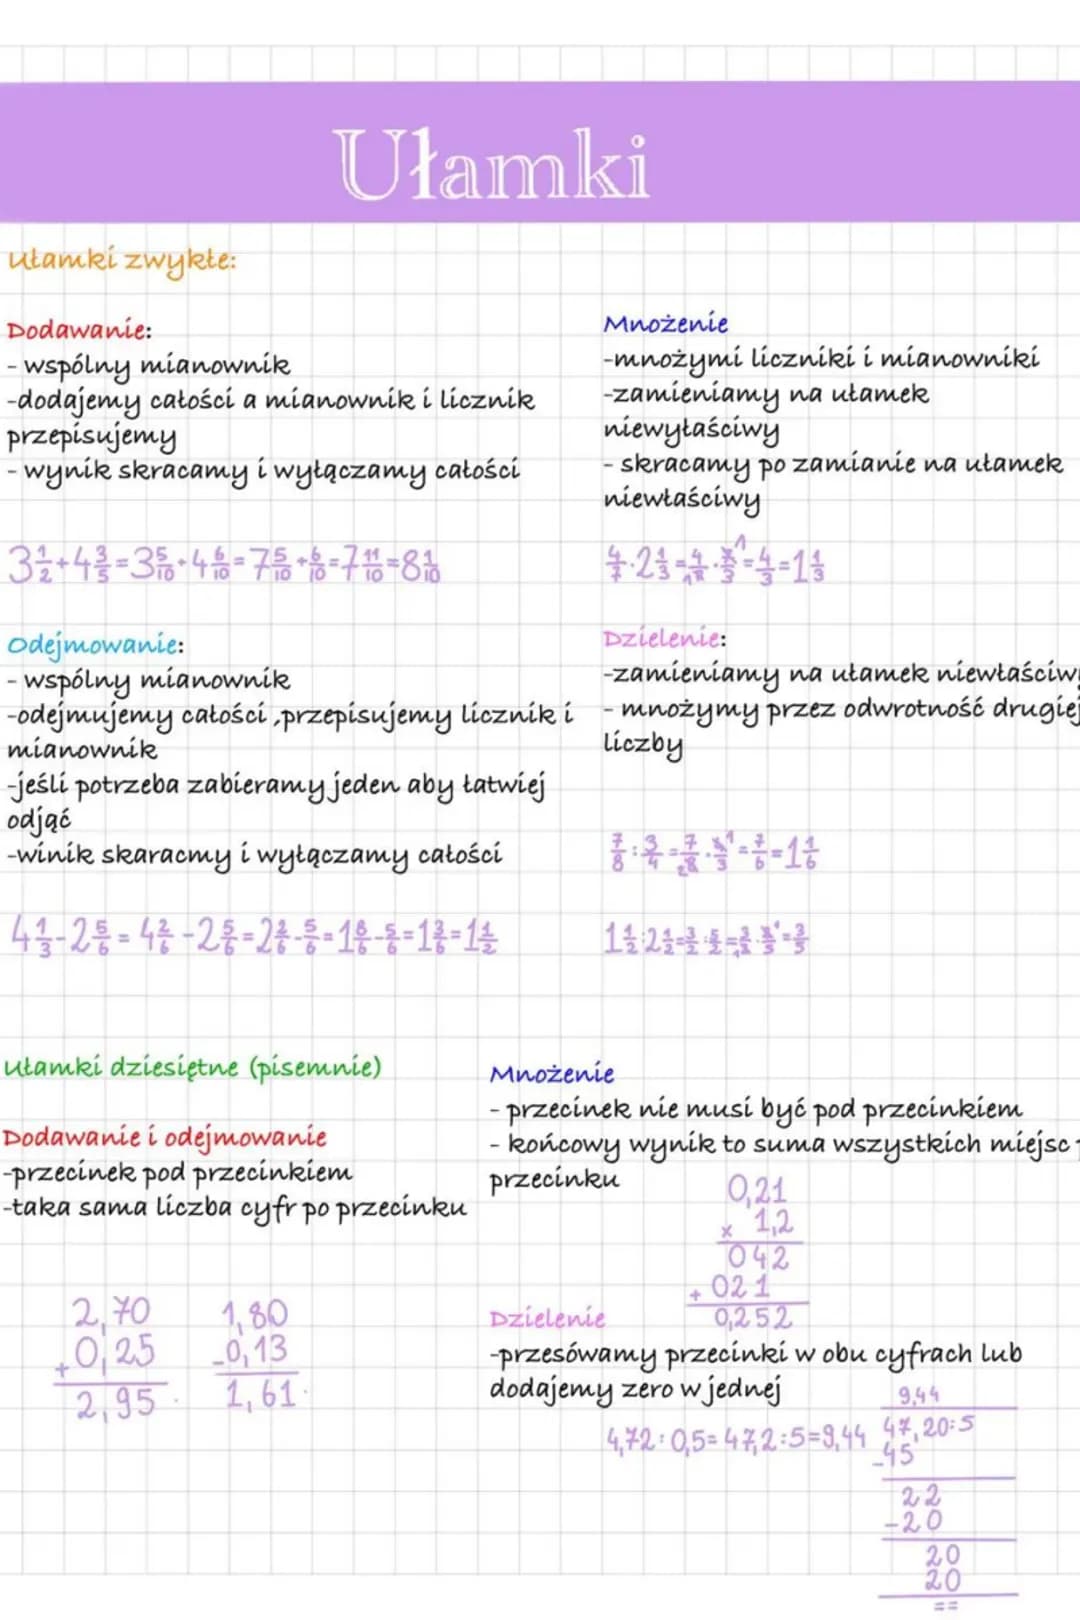 Ułamki
Ułamki zwykłe:
Dodawanie:
- wspólny mianownik
-dodajemy całości a mianownik i licznik
przepisujemy
- wynik skracamy i wyłączamy całości
3 1/2 + 4 3/5 = 3 5/10 + 4 6/10 = 7 5/10 + 6/10 = 7 11/10 = 8 1/10
Odejmowanie:
- wspólny mianownik
-odejmujemy całości ,przepisujemy licznik i
mianownik
-jeśli potrzeba zabieramy jeden aby łatwiej
odjąć
-winik skaracmy i wyłączamy całości
4 1/3 - 2 5/6 = 4 2/6 - 2 5/6 = 2 2/6 - 5/6 = 1 8/6 - 5/6 = 1 3/6 = 1 1/2
Mnożenie
-mnożymi liczniki i mianowniki
-zamieniamy na ułamek
niewyłaściwy
- skracamy po zamianie na ułamek
niewłaściwy
4/7 · 2 1/3 = 4/7 · 7/3 = 4/3 = 1 1/3
Dzielenie:
-zamieniamy na ułamek niewłaściwy
- mnożymy przez odwrotność drugiej
liczby
7/8 : 3/4 = 7/8 · 4/3 = 7/6 = 1 1/6
1 1/2 : 2 1/2 = 3/2 : 5/2 = 3/2 · 2/5 = 3/5
Ułamki dziesiętne (pisemnie)
Dodawanie i odejmowanie
-przecinek pod przecinkiem
-taka sama liczba cyfr po przecinku
2,70
+0,25
2,95
1,80
-0,13
1,61
Mnożenie
- przecinek nie musi być pod przecinkiem
- końcowy wynik to suma wszystkich miejsc
przecinku
0,21
x 1,2
042
+ 021
0,252
Dzielenie
-przesówamy przecinki w obu cyfrach lub
dodajemy zero w jednej
4,72 : 0,5 = 47,2 : 5 = 9,44
9,44
47,20:5
-45
22
-20
20
20
==